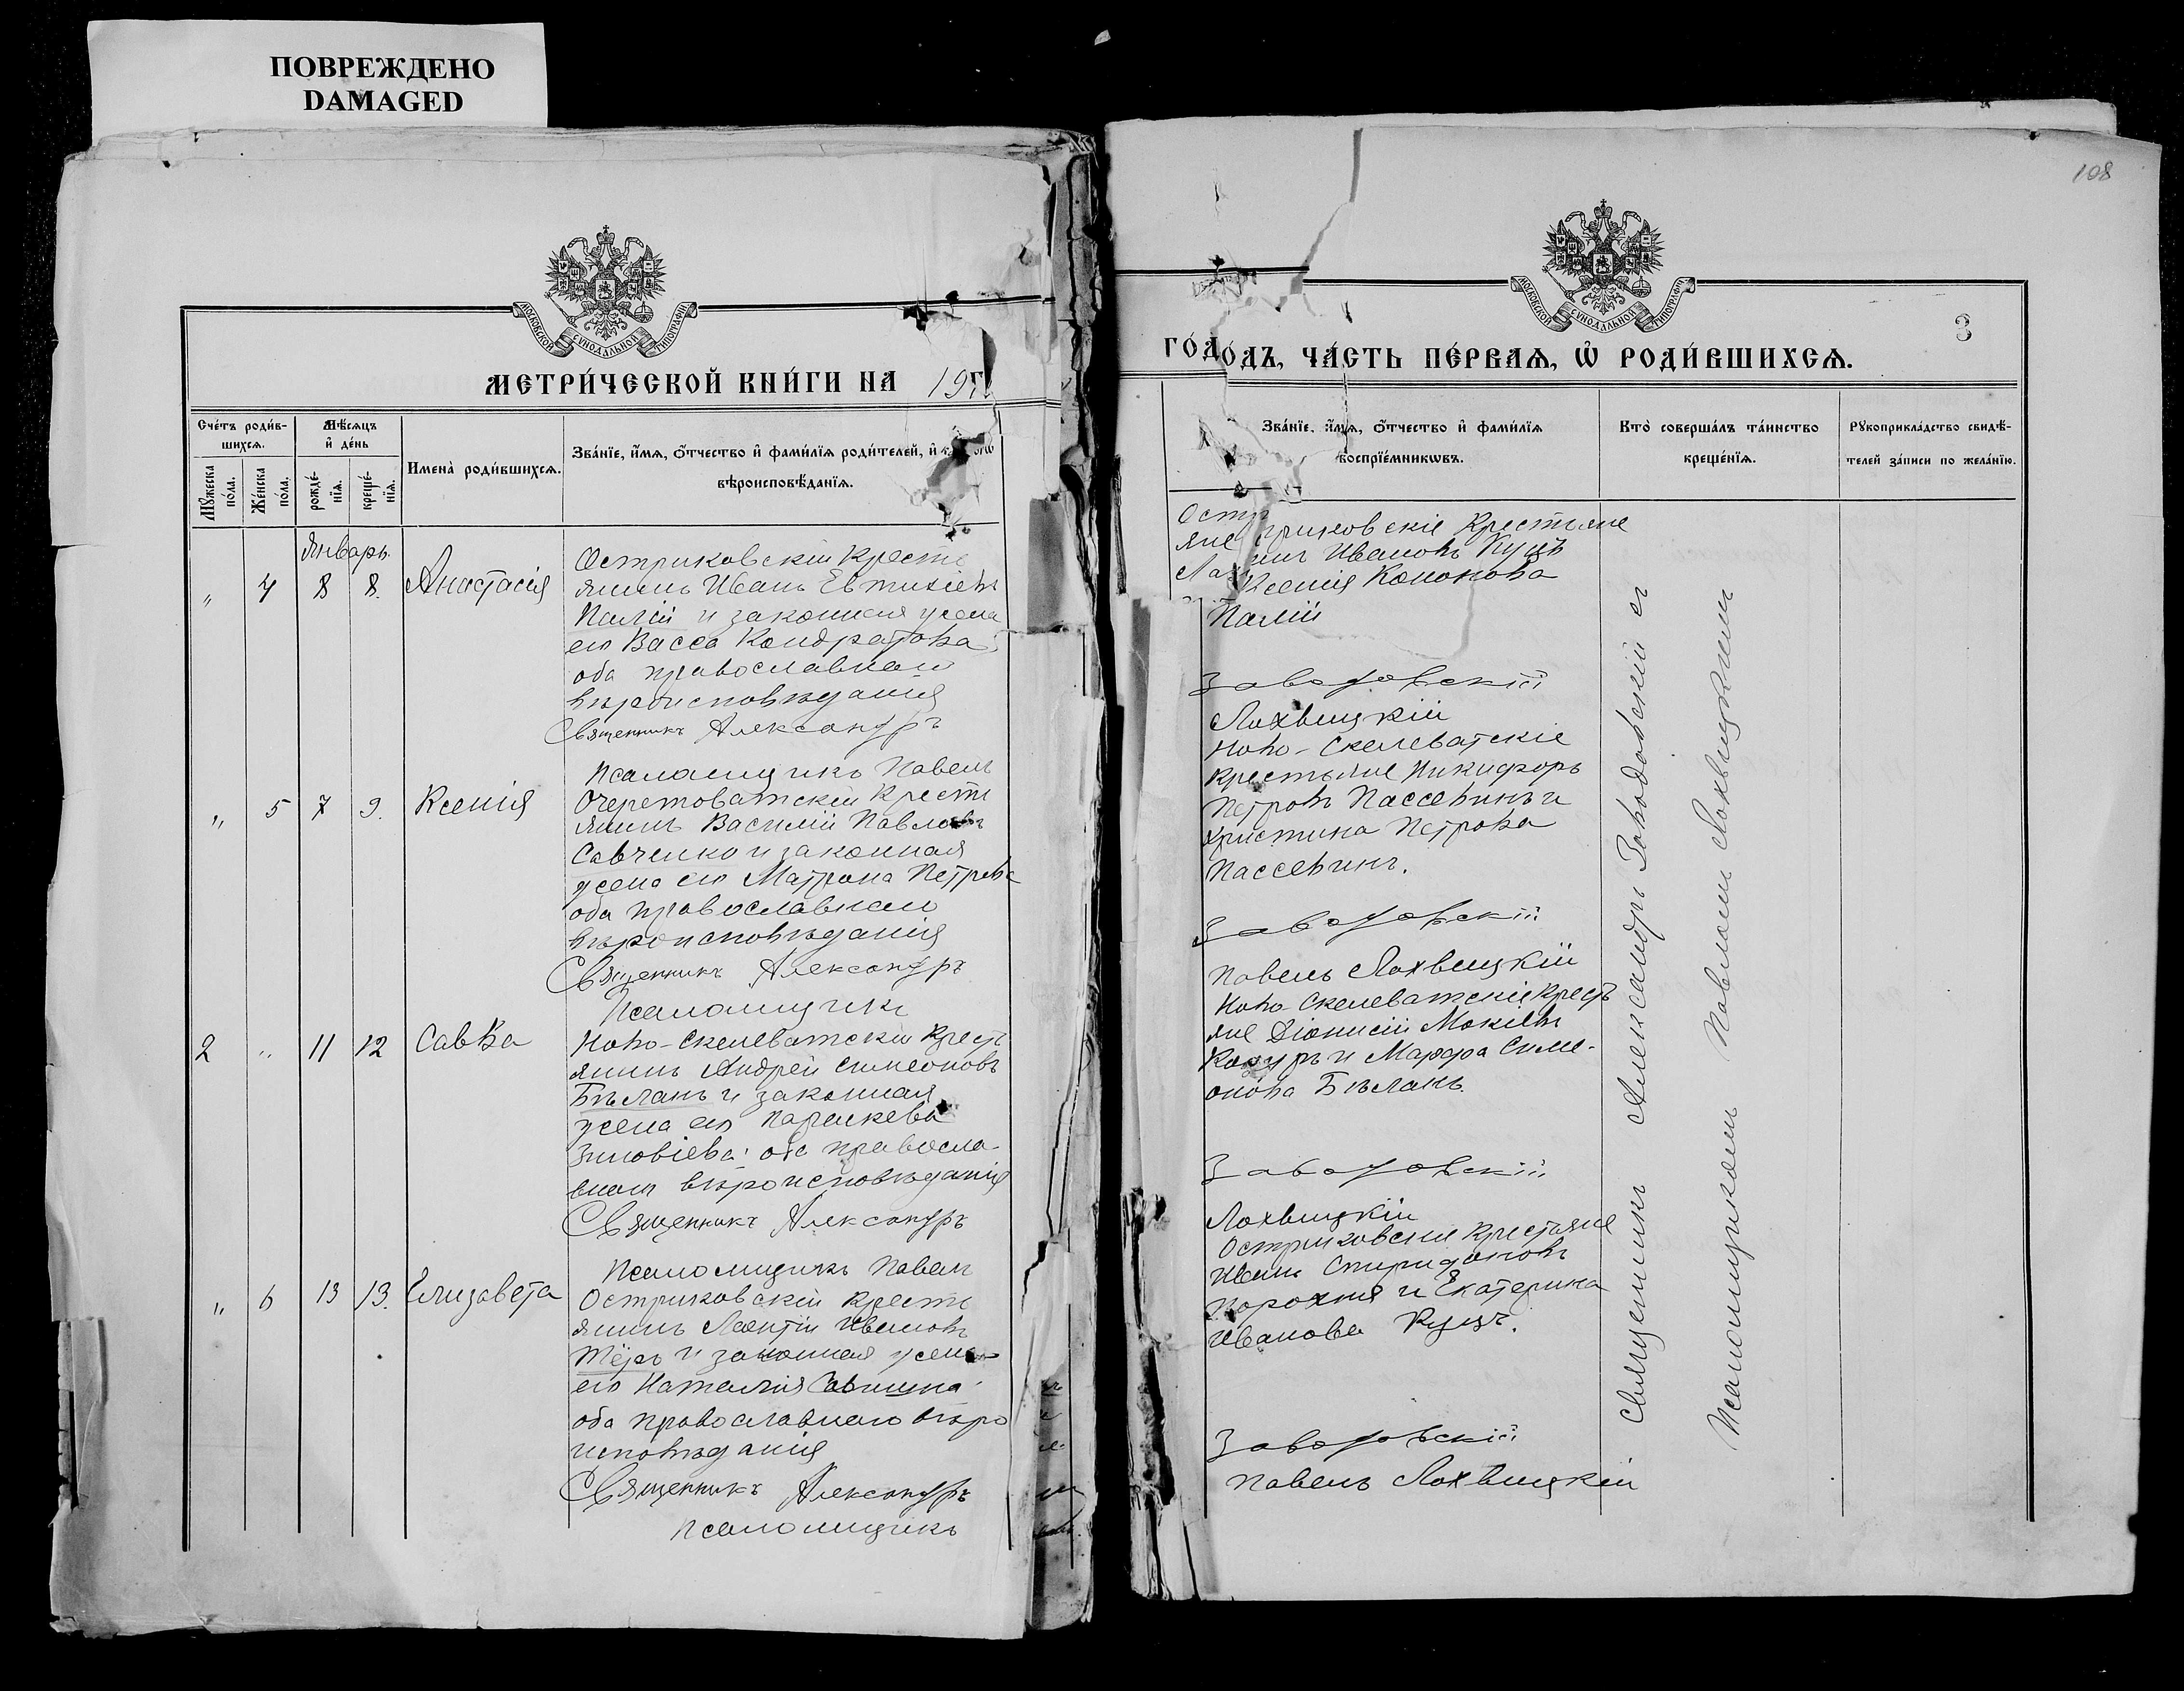 ПОВРЕЖДЕНО
DAMAGED
МОСКОВСКОЙ СѴНОДАЛЬНОЙ ТИПОГРАФІИ
МЕТРИ́ЧЕСКОЙ КНИ́ГИ НА 19
Сче́тъ роди́в-
шихсѧ.
Мꙋ́жеска
по́ла.
Же́нска
по́ла.
Мѣ́сѧцъ
и҆ де́нь
рожде́-
нїѧ.
креще́-
нїѧ.
Имена̀ роди́вшихсѧ.
Зва́нїе, и҆́мѧ, ѻ҆́тчество и҆ фами́лїѧ роди́телей, и҆
вѣроисповѣ́данїѧ.
Январь.
" 4 8 8. Анастасія
Остриковскій кресть
янинъ Иванъ Евтихіевъ
Палій и законная жена
его Васса Кондратова
оба православнаго
вѣроисповѣданія
Священникъ Александръ
Псаломщикъ Павелъ
" 5 7 9. Ксенія
Очеретоватскій кресть
янинъ Василій Павловъ
Савченко и законная
жена его Матрона Петрова
оба православнаго
вѣроисповѣданія
Священникъ Александръ
Псаломщикъ
2 " 11 12 Савва
Ново-Скелеватскій крест
янинъ Андрей Симеоновъ
Бѣланъ и законная
жена его Параскева
Зиновіева: оба правосла-
внаго вѣроисповѣданія
Священникъ Александръ
Псаломщикъ Павелъ
" 6 13 13. Елизавета
Остриковскій кресть
янинъ Леонтій Ивановъ
и законная жена
его Наталія Саввина
оба православнаго вѣро
исповѣданія
Священникъ Александръ
Псаломщикъ
108
3
МОСКОВСКОЙ СѴНОДАЛЬНОЙ ТИПОГРАФІИ
ГО́ДЪ, ЧА́СТЬ ПЕ́РВАѦ, Ѽ РОДИ́ВШИХСѦ.
Зва́нїе, и҆́мѧ, ѻ҆́тчество и҆ фами́лїѧ
воспрїе́мникѡвъ.
Кто̀ соверша́лъ та́инство
креще́нїѧ.
Рꙋкоприкла́дство свидѣ́-
телей за́писи по жела́нїю.
Остриковскіе крестьяне
Ивановъ Куцъ
Ксенія Кононова
Палій
Заводовскій
Лохвицкій
Ново-Скелеватскіе
крестьяне Никифоръ
Петровъ Пассевинъ и
Христина Петрова
Пассевинъ.
Заводовскій
Павелъ Лохвицкій
Ново Скелеватскіе крест
яне Діонисій Мокіевъ
и Марфа Симе-
онова Бѣланъ.
Заводовскій
Лохвицкій
Остриковскіе крестьяне
Иванъ Спиридоновъ
Порохня и Екатерина
Иванова Куцъ.
Заводовскій
Павелъ Лохвицкій
Священникъ Александръ Заводовскій съ
Псаломщикомъ Павломъ Лохвицкимъ